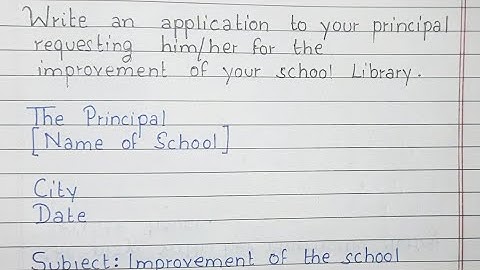 Write an application to your principal
requesting him/her for the
improvement of your school Library.
The Principal
[Name of School]
City
Date
Subject: Improvement of the school